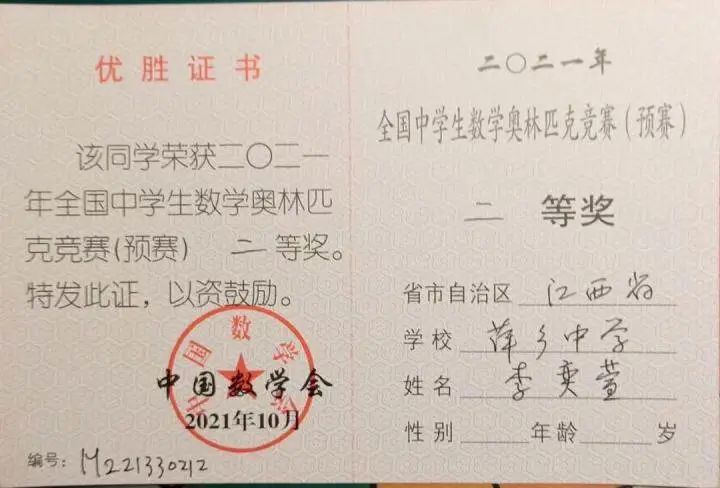 优胜证书
该同学荣获二〇二一
年全国中学生数学奥林匹
克竞赛(预赛) 二等奖。
特发此证，以资鼓励。
中国数学会
中国数学会
2021年10月
编号：M221330212
二〇二一年
全国中学生数学奥林匹克竞赛(预赛)
二 等奖
省市自治区 江西省
学校 萍乡中学
姓名 李奕萱
性别 年龄 岁